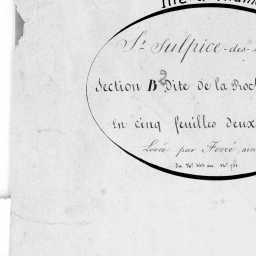 St Sulpice-des-
Section B2 Dite de la Roch
En cinq feuilles deux
Levée par Favré
Du No